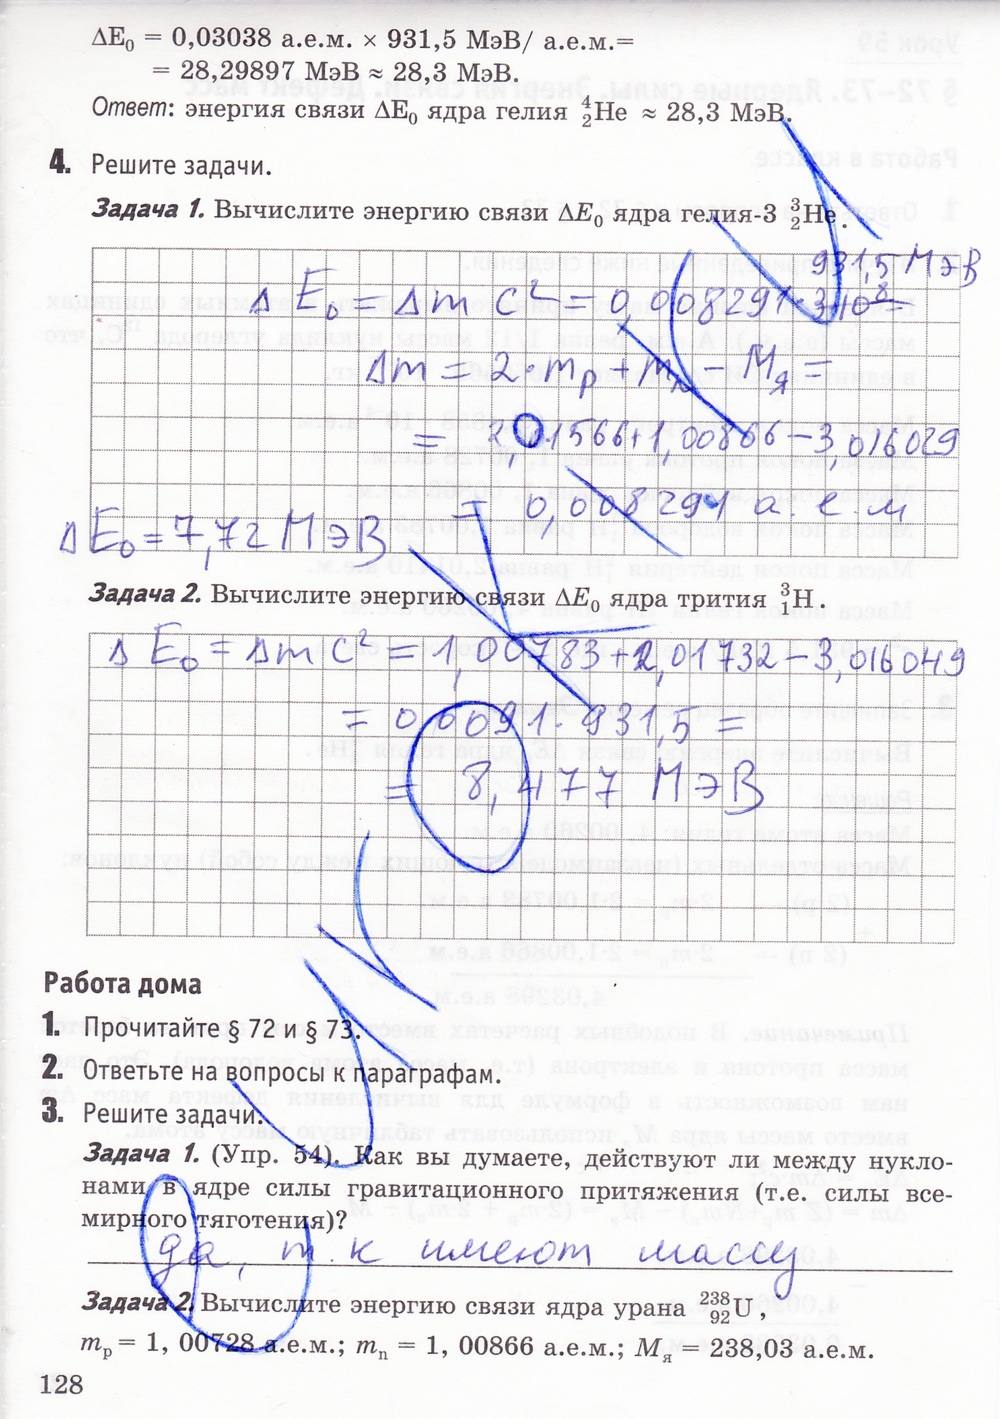 ΔE₀ = 0,03038 а.е.м. × 931,5 МэВ/ а.е.м.=
= 28,29897 МэВ ≈ 28,3 МэВ.
Ответ: энергия связи ΔE₀ ядра гелия ⁴₂He ≈ 28,3 МэВ.
4. Решите задачи.
Задача 1. Вычислите энергию связи ΔE₀ ядра гелия-3 ³₂He.
931,5 МэВ
Δ E₀ = Δm c² = 0,008291
Δm = 2·mp + mn − Mя =
= 2,01566+1,00866−3,016029
= 0,008291 а.е.м
Δ E₀ = 7,72 МэВ
Задача 2. Вычислите энергию связи ΔE₀ ядра трития ³H.
Δ E₀ = Δm c² = 1,00783+2,01732−3,016049
= 0,0091·931,5 =
= 8,477 МэВ
Работа дома
1. Прочитайте § 72 и § 73.
2. Ответьте на вопросы к параграфам.
3. Решите задачи.
Задача 1. (Упр. 54). Как вы думаете, действуют ли между нукло-
нами в ядре силы гравитационного притяжения (т.е. силы все-
мирного тяготения)?
да, т к имеют массу
Задача 2. Вычислите энергию связи ядра урана ²³⁸₉₂U,
mp = 1, 00728 а.е.м.; mn = 1, 00866 а.е.м.; Mя = 238,03 а.е.м.
128